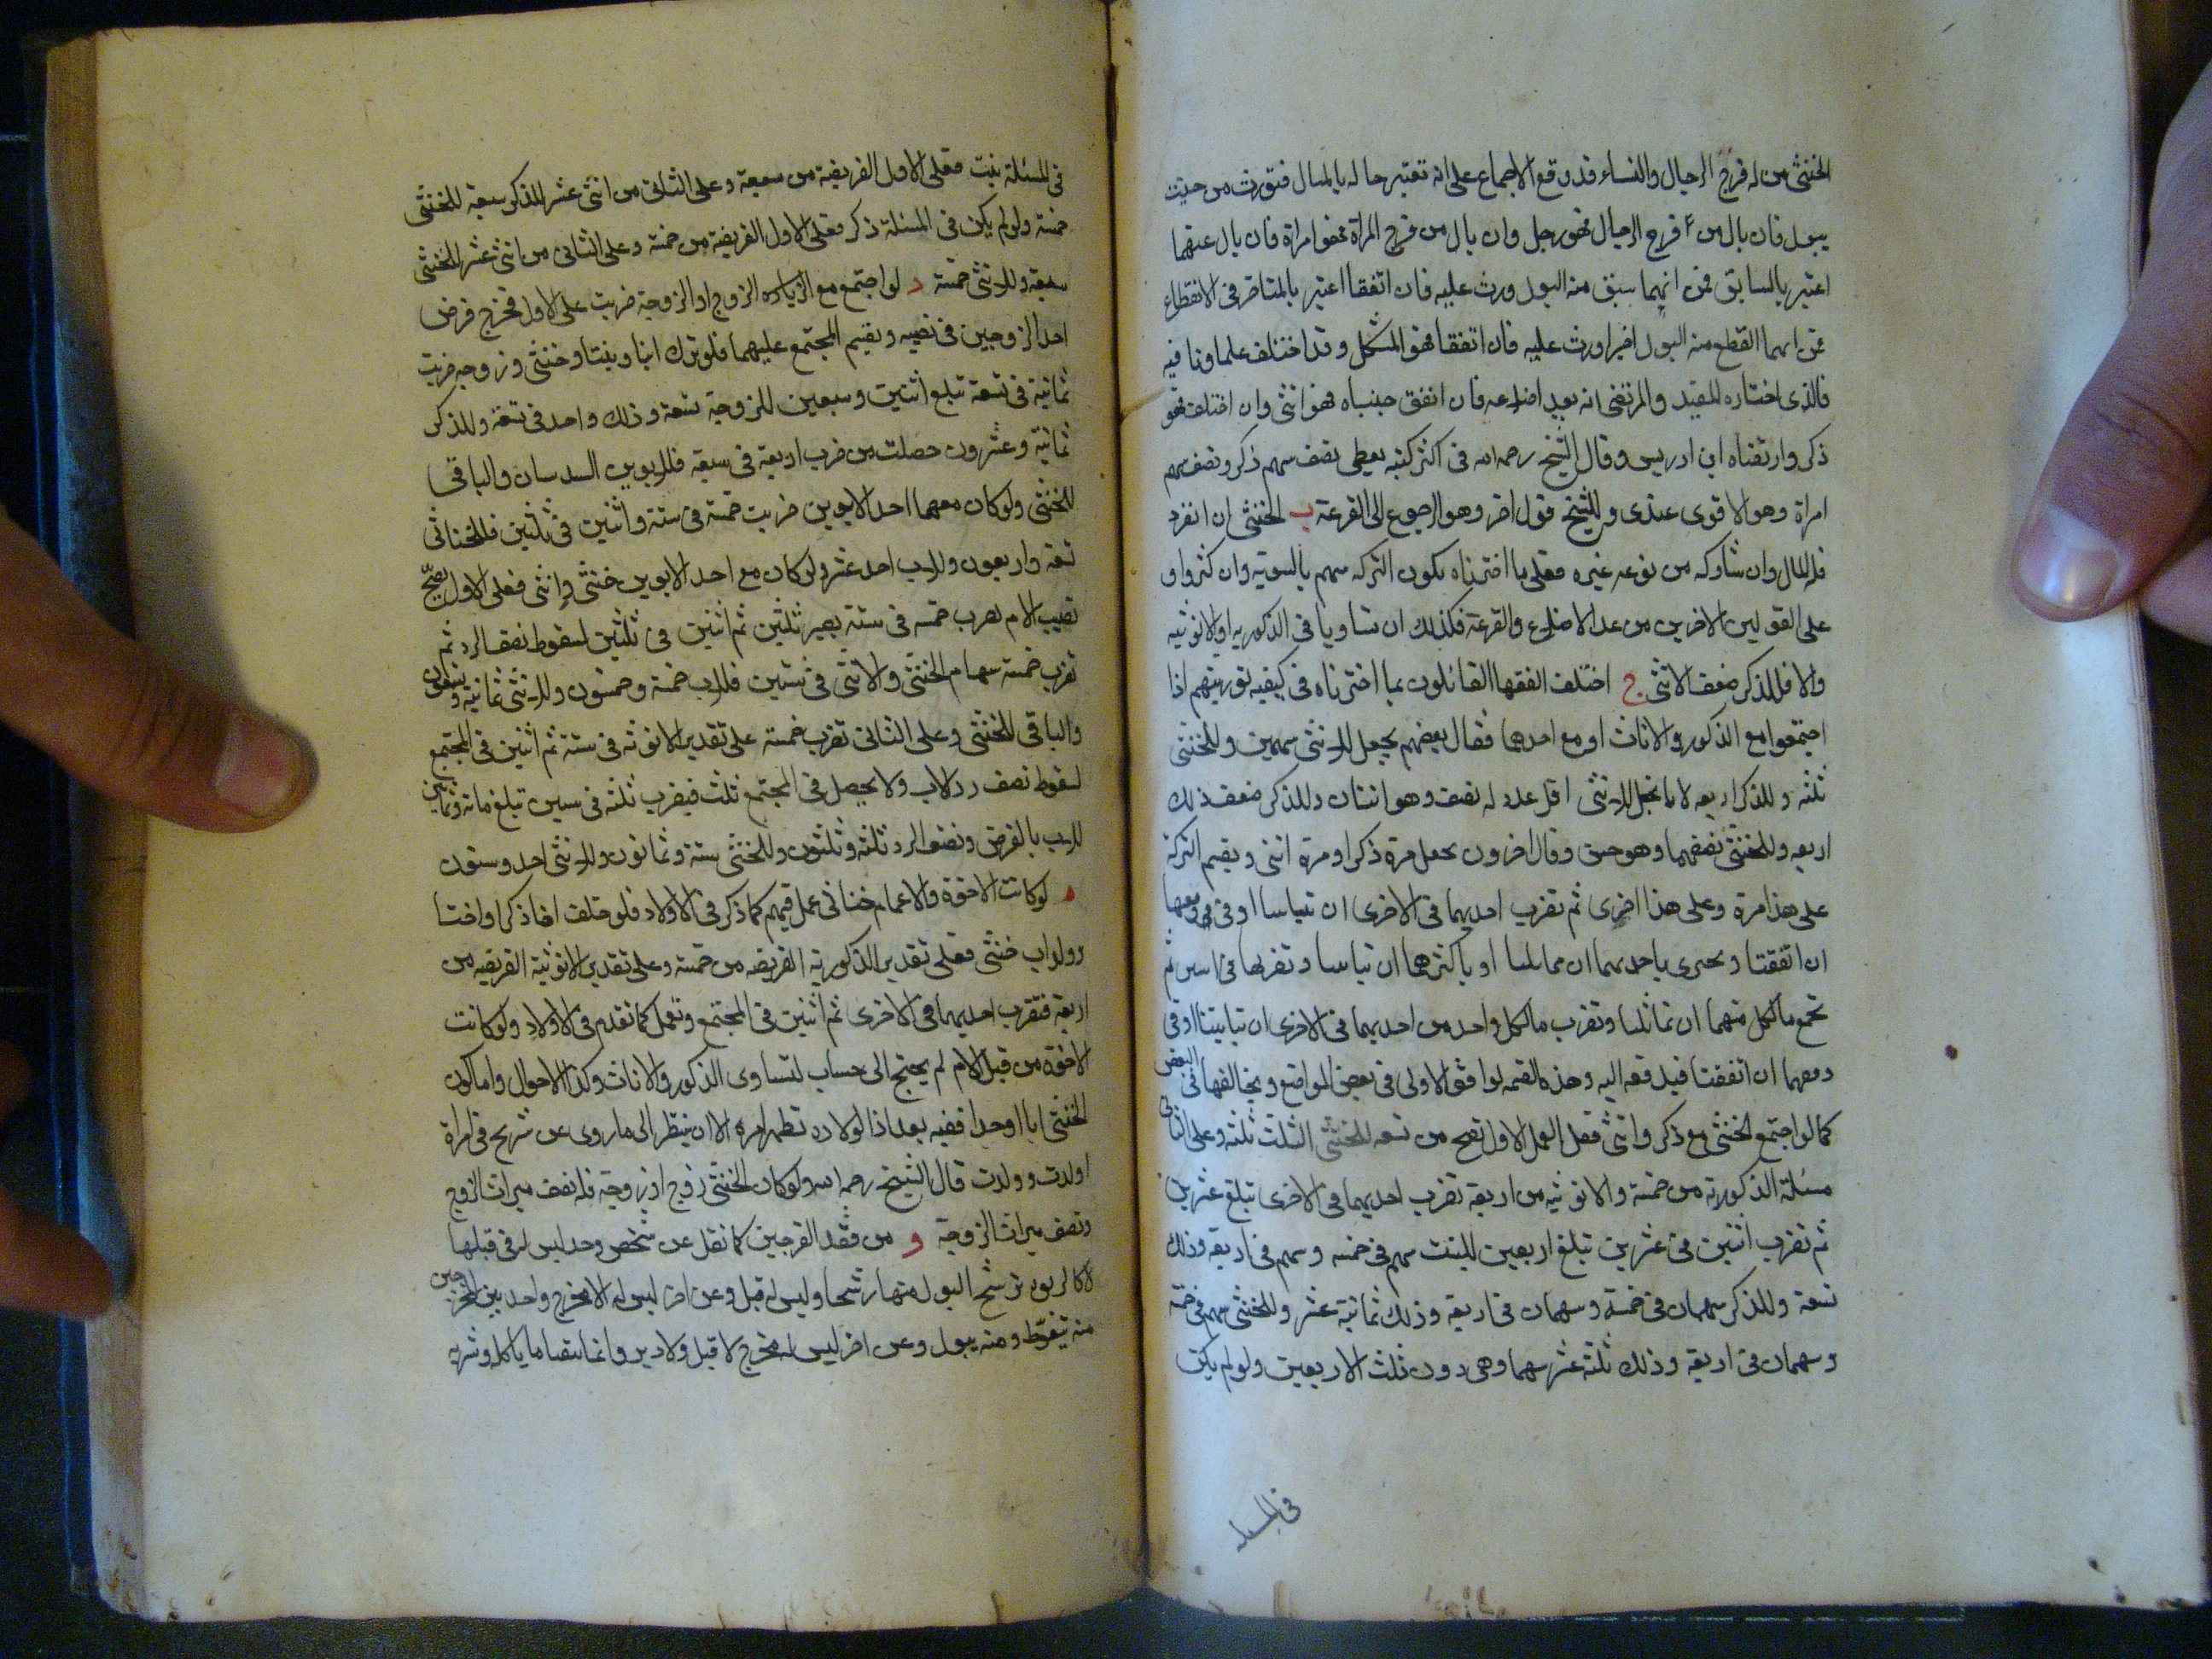 الخنثى من له فرج الرجال والنساء قد وقع الاجماع على انه تعتبر حاله بالمبال فتورث من حيث
يبول فان بال من فرج الرجال فهو رجل وان بال من فرج المراة فهو امراة فان بال عنهما
اعتبر بالسابق فمن ايهما سبق منه البول ورث عليه فان اتفقا اعتبر بالمتاخر فى الانقطاع
فمن ايهما انقطع منه البول اخيرا ورث عليه فان اتفقا فهو المشكل وقد اختلف علماونا فيه
فالذى اختاره المفيد والمرتضى انه يعد اضلاعه فان اتفق جنباه فهو انثى وان اختلف فهو
ذكر وارتضاه ابن ادريس وقال الشيخ رحمه الله فى اكثر كتبه يعطى نصف سهم ذكر ونصف سهم
امراة وهو الاقوى عندى وللشيخ قول اخر وهو الرجوع الى القرعة ب الخنثى ان انفرد
فله المال وان شاركه من نوعه غيره فعلى ما اخترناه يكون التركه بينهم بالسويه وان كثروا و
على القولين الاخرين من عد الاضلاع والقرعة فكذلك ان تساويا فى الذكوريه او الانوثيه
والا فللذكر ضعف الانثى ج اختلف الفقها القائلون بما اخترناه فى كيفيه توريثهم اذا
اجتمعوا مع الذكور والاناث او مع احدهما فقال بعضهم يجعل للانثى سهمين وللخنثى
ثلثه وللذكر اربعه لانا نجعل للانثى اقل عدد له نصف وهو اثنان وللذكر ضعف ذلك
اربعه وللخنثى نصفهما وهو حسن وقال اخرون نجعل مرة ذكرا ومرة انثى ويقسم التركة
على هذا مرة وعلى هذا اخرى ثم تضرب احديهما فى الاخرى ان تباينتا او فى وفقها
ان اتفقتا ويجزى باحديهما ان تماثلتا او باكثرهما ان تناسبا وتضربها فى اثنين ثم
تجمع مالكل منهما ان تماثلتا وتضرب مالكل واحد من احديهما فى الاخرى ان تباينتا او فى
وفقهما ان اتفقتا فيدفعه اليه وهذه القسمه توافق الاولى فى بعض المواضع ويخالفها فى البعض
كما لو اجتمع الخنثى مع ذكر وانثى فعلى العمل الاول تصح من تسعه للخنثى الثلث ثلثه وعلى الثانى
مسئلة الذكوريه من خمسة والانوثيه من اربعة تضرب احديهما فى الاخرى تبلغ عشرين
ثم تضرب اثنين فى عشرين تبلغ اربعين للبنت سهم فى خمسه وسهم فى اربعه وذلك
تسعة وللذكر سهمان فى خمسة وسهمان فى اربعة وذلك ثمانية عشر وللخنثى سهم فى خمسة
وسهمان فى اربعة وذلك ثلثة عشر سهما وهى دون ثلث الاربعين ولو لم يكن
فى المسئله
فى المسئلة بنت فعلى الاول الفريضة من سبعة وعلى الثانى من اثنى عشر للذكر سبعة للخنثى
خمسة ولو لم يكن فى المسئلة ذكر فعلى الاول الفريضة من خمسة وعلى الثانى من اثنى عشر للخنثى
سبعة وللانثى خمسة د لو اجتمع مع الزياده الزوج او الزوجة ضربت على الاول مخرج فرض
احد الزوجين فى نصيبه وتقسم المجتمع عليهما فلو ترك ابنا وبنتا وخنثى وزوجه ضربت
ثمانية فى تسعة تبلغ اثنين وسبعين للزوجة تسعة وذلك واحد فى تسعة وللذكر
ثمانية وعشرون حصلت من ضرب اربعة فى سبعة فللابوين السدسان والباقى
للخنثى ولو كان معهما احد الابوين ضربت خمسة فى ستة واثنين فى ثلثين فللخناثى
تسعة واربعون وللاب احد عشر ولو كان مع احد الابوين خنثى وانثى فعلى الاول يصح
نصيب الام بضرب خمسه فى ستة يصير ثلثين ثم اثنين فى ثلثين لسقوط نصف الرد ثم
تضرب خمسة سهام الخنثى والانثى فى ستين فللاب خمسة وخمسون وللانثى ثمانية وتسعون
والباقى للخنثى وعلى الثانى تضرب خمسة على تقدير الانوثه فى ستة ثم اثنين فى المجتمع
لسقوط نصف رد الاب ولا يحصل فى المجتمع ثلث فيضرب ثلثه فى ستين تبلغ مائة وثمانين
للاب بالفرض ونصف الرد ثلثه وثلثون وللخنثى ستة وثمانون وللانثى احد وستون
ه لو كانت الاخوة والاعمام خناثى عمل فيهم كما ذكر فى الاولاد فلو خلف اخا ذكرا واختا
وولد اب خنثى فعلى تقدير الذكورية الفريضه من خمسة وعلى تقدير الانوثية الفريضه من
اربعة فتضرب احديهما فى الاخرى ثم اثنين فى المجتمع وتعمل كما تقدم فى الاولاد ولو كانت
الاخوة من قبل الام لم يحتج الى حساب لتساوى الذكور والاناث وكذا الاحوال واما كون
الخنثى ابا او جدا ففيه بعد اذ الولاده تظهر امره الا ان ينظر الى ما روى عن شريح فى امراة
اولدت وولدت قال الشيخ رحمه الله ولو كان الخنثى زوج او زوجة فله نصف ميراث الزوج
ونصف ميراث الزوجة و من فقد الفرجين كما نقل عن شخص وجد ليس له فى قبلها
لا كالربوه ترشح البول منها رشحا وليس له قبل وعن اخر ليس له الا مخرج واحد بين المخرجين
منه يتغوط ومنه يبول وعن اخر ليس له مخرج لا قبل ولا دبر وانما يتقيا ما ياكله وشربه